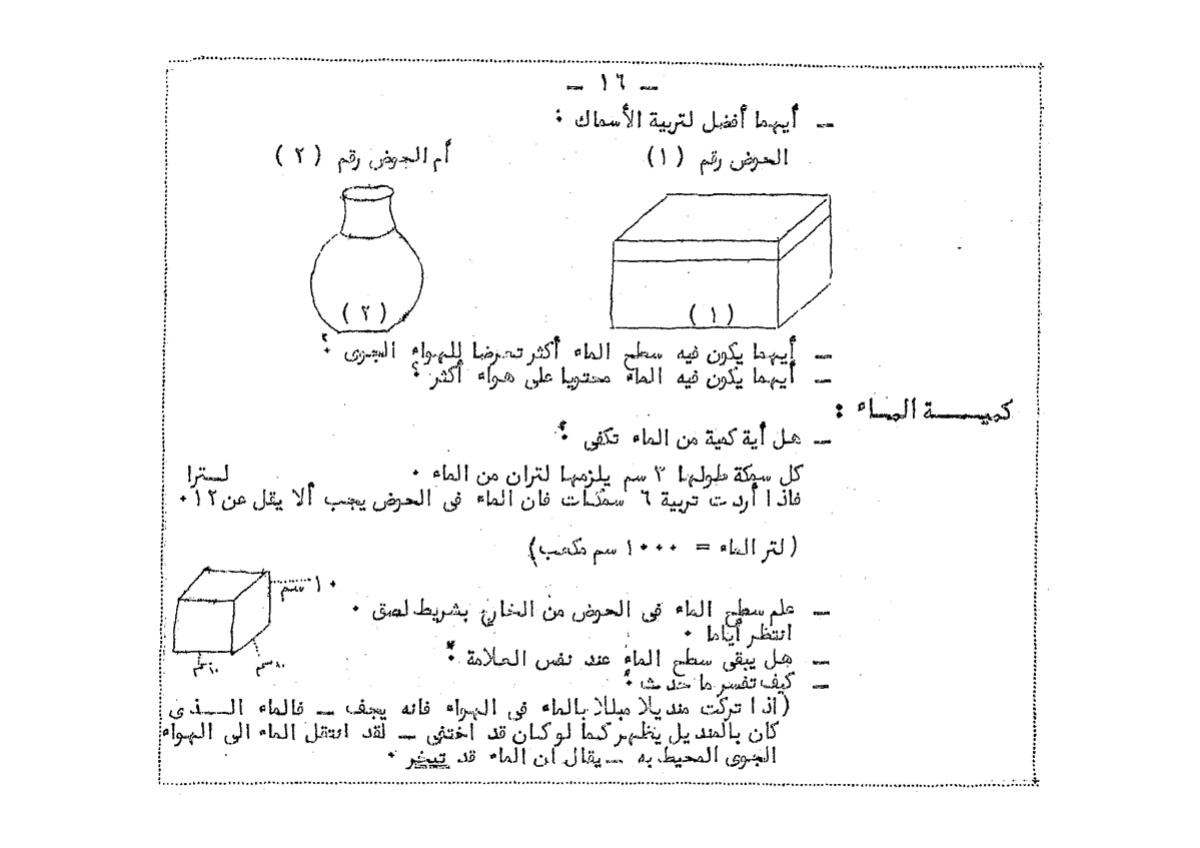 - ١٦ -
- أيهما أفضل لتربية الأسماك ؟
الحوض رقم (١) أم الحوض رقم (٢)
(١) (٢)
- أيهما يكون فيه سطح الماء أكثر تعرضا للهواء الجوى ؟
- أيهما يكون فيه الماء محتويا على هواء أكثر ؟
كميـــة المـاء :
- هل أية كمية من الماء تكفى ؟
كل سمكة طولها ٣ سم يلزمها لتران من الماء . لـترا
فاذا أردت تربية ٦ سمكات فان الماء فى الحوض يجب ألا يقل عن ١٢ .
(لتر الماء = ١٠٠٠ سم مكعب)
١٠ سم
١٠ سم ١٠ سم
- علم سطح الماء فى الحوض من الخارج بشريط لصق .
انتظر أياما .
- هل يبقى سطح الماء عند نفس العلامة ؟
- كيف تفسر ما حدث ؟
(اذا تركت منديلا مبللا بالماء فى الهواء فانه يجف - فالماء الـذى
كان بالمنديل يظهر كما لو كان قد اختفى - لقد انتقل الماء الى الهواء
الجوى المحيط به - يقال ان الماء قد تبخر .